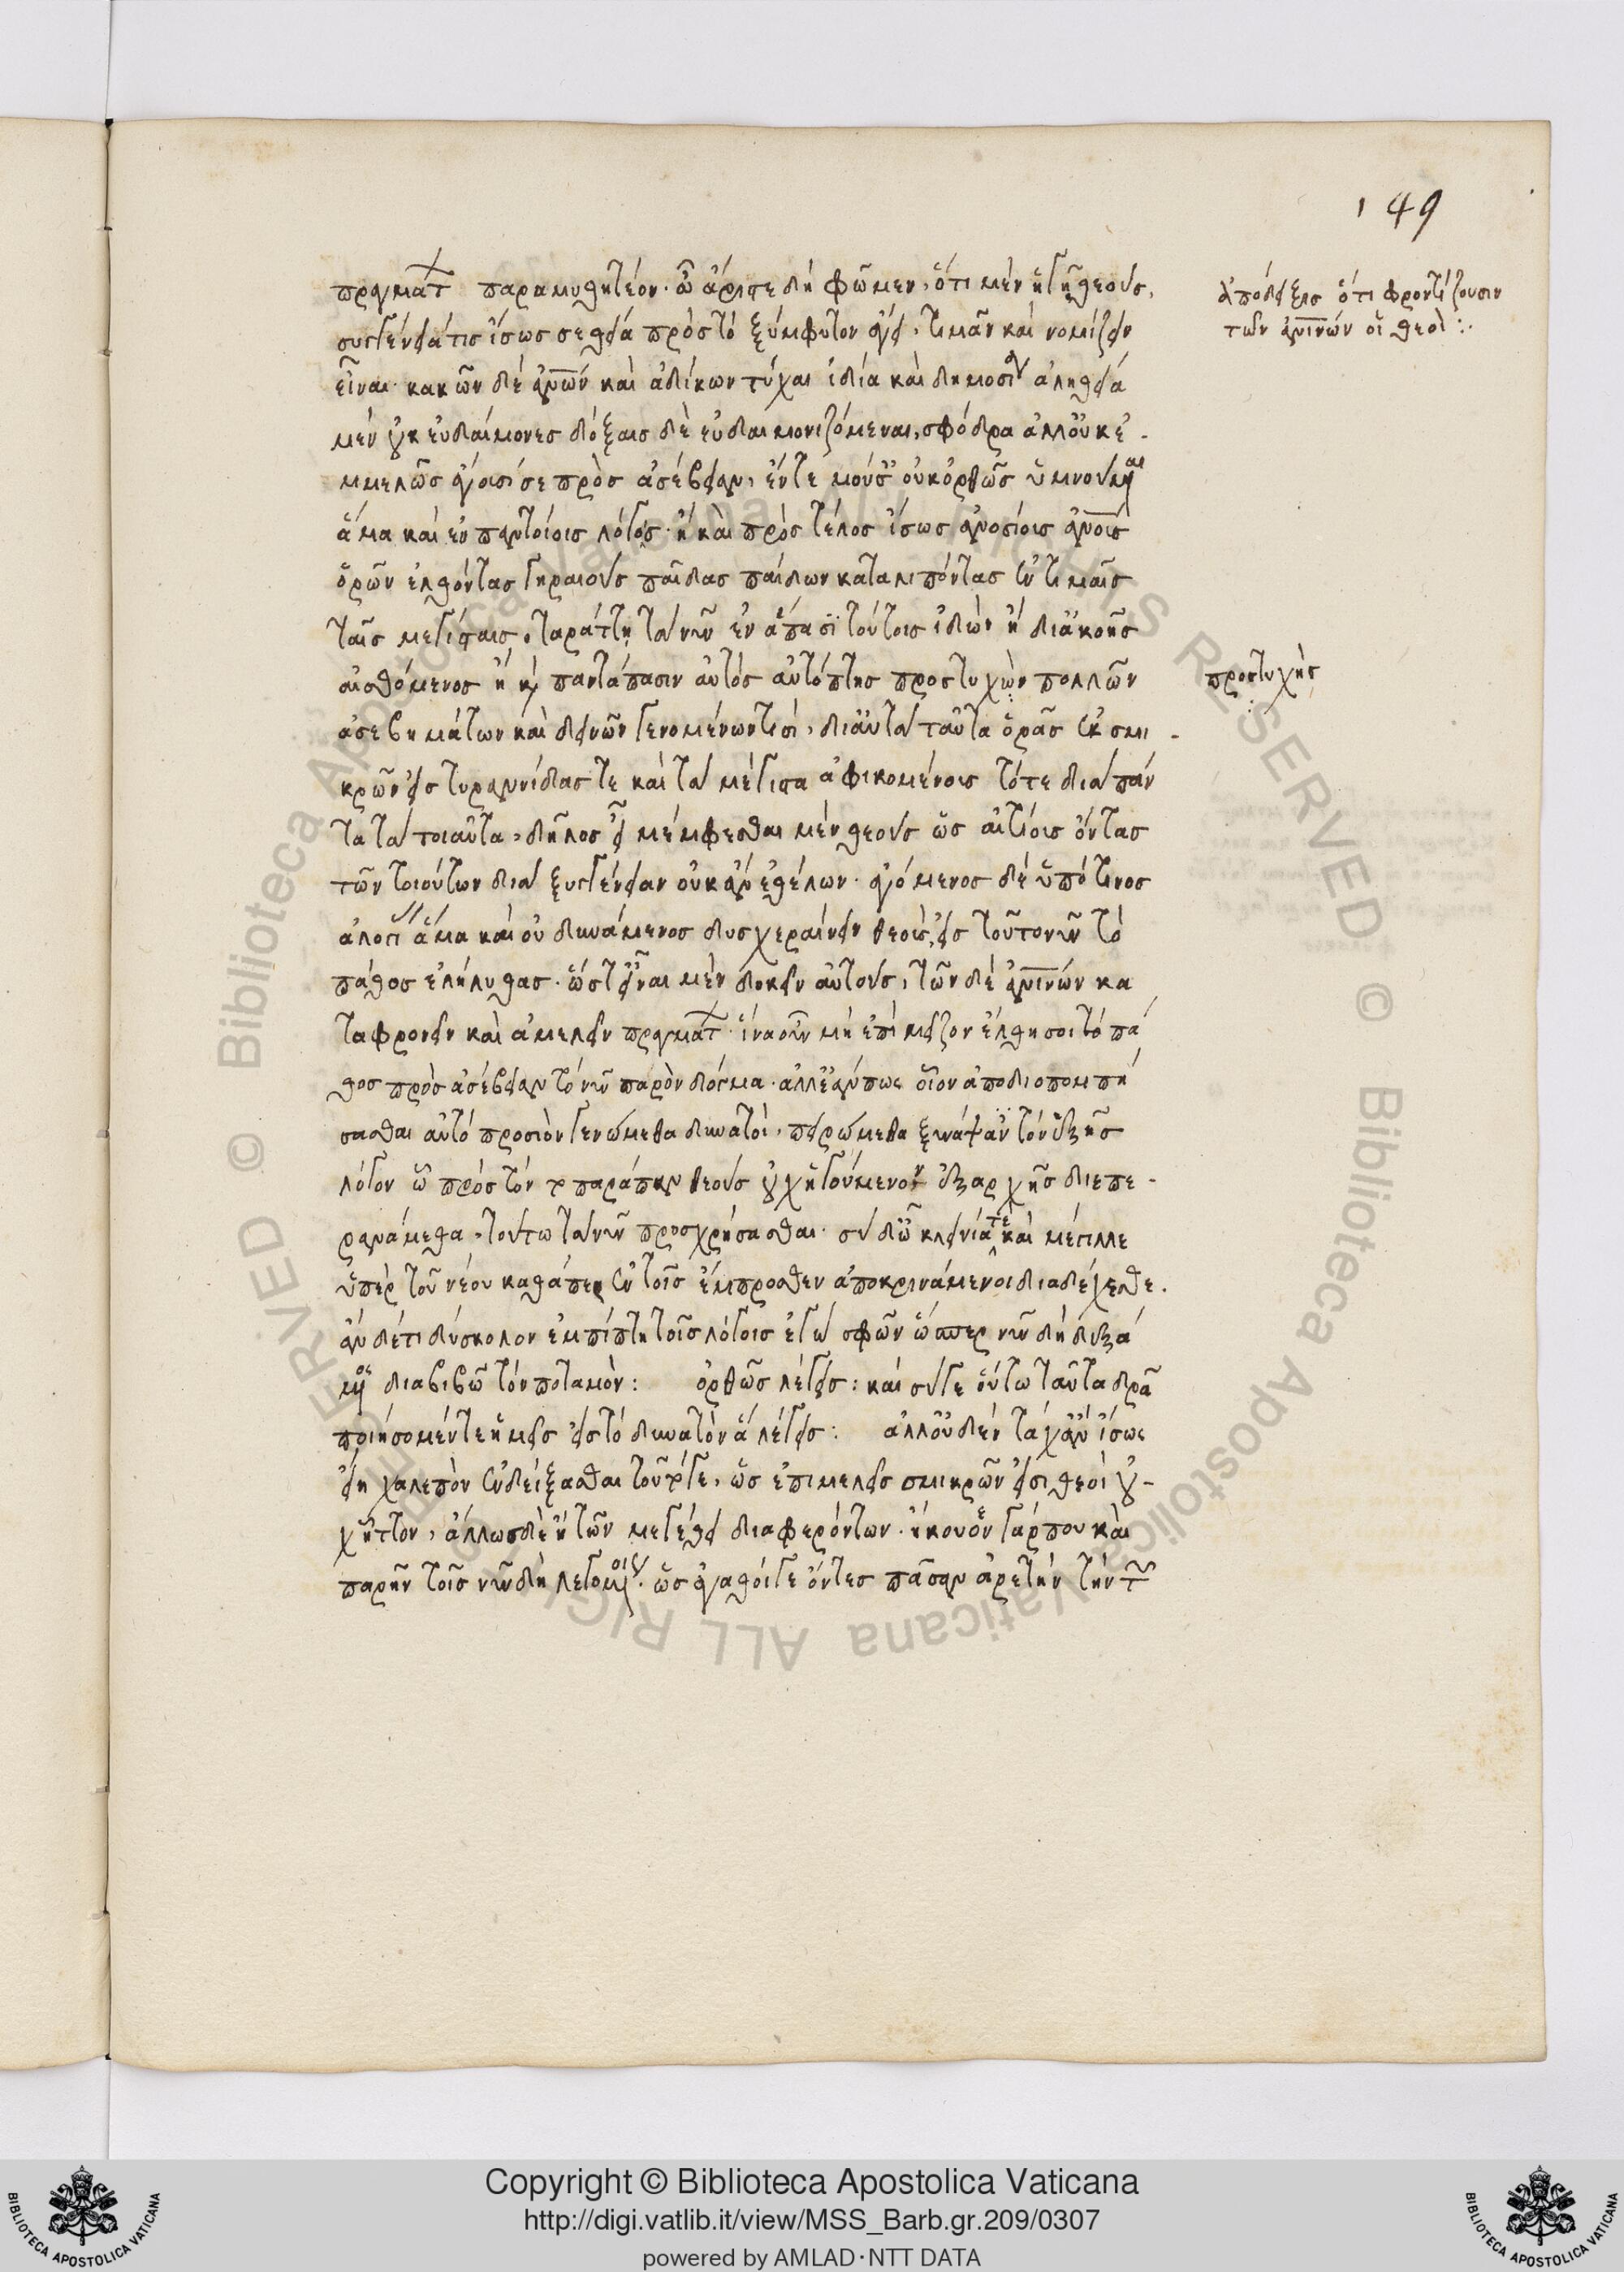 149
πραγμάτ παραμυθητέον. ὦ ἄριστε δὴ φῶμεν, ὅτι μὲν ἡγῇ θεοὺς,
συγγένειά τις ἴσως σε θεία πρὸς τὸ ξύμφυτον ἄγει, τιμᾶν καὶ νομίζειν
εἶναι. κακῶν δὲ ἀνων καὶ ἀδίκων τύχαι ἰδία καὶ δημοσία ἀληθεία
μὲν οὐκ εὐδαίμονες δόξαις δὲ εὐδαιμονιζόμεναι, σφόδρα ἀλλ οὐκ ἐ-
μμελῶς ἄγουσί σε πρὸς ἀσέβειαν, ἔν τε μούσαις οὐκ ὀρθῶς ὑμνούμεναι
ἅμα καὶ ἐν παντοίοις λόγοις. ἢ καὶ πρὸς τέλος ἴσως ἀνοσίοις ἀνοις
ὁρῶν ἐλθόντας γηραιοὺς παῖδας παίδων καταλιπόντας ἐν τιμαῖς
ταῖς μεγίσταις, ταράττῃ τὰ νῦν ἐν ἅπασι τούτοις ἰδὼν ἢ δι ἀκοῆς
αἰσθόμενος ἢ καὶ παντάπασιν αὐτὸς αὐτόπτης προστυχὼν πολλῶν
ἀσεβημάτων καὶ δεινῶν γενομένων τισὶ, δι αὐτὰ ταῦτα ὁρᾶς ἐκ σμι-
κρῶν εἰς τυραννίδας τε καὶ τὰ μέγιστα ἀφικομένοις τότε διὰ πάν
τα τὰ τοιαῦτα, δῆλος εἶ μέμφεσθαι μὲν θεοὺς ὡς αἰτίοις ὄντας
τῶν τοιούτων διὰ ξυγγένειαν οὐκ ἂν ἐθέλων. ἀγόμενος δὲ ὑπό τινος
ἀλογί ἅμα καὶ οὐ δυνάμενος δυσχεραίνειν θεοὺς, εἰς τοῦτο νῦν τὸ
πάθος ἐλήλυθας. ὥστ εἶναι μὲν δοκεῖν αὐτοὺς, τῶν δὲ ἀνινων κα
ταφρονεῖν καὶ ἀμελεῖν πραγμάτ. ἵνα οὖν μὴ ἐπὶ μεῖζον ἔλθῃ σοι τὸ πά
θος πρὸς ἀσέβειαν τὸ νῦν παρὸν δόγμα. ἀλλ ἐάν πως οἷον ἀποδιοπομπή
σασθαι αὐτὸ προσιὸν γενώμεθα δυνατοὶ, πειρώμεθα ξυνάψαν τὸν ἑξῆς
λόγον ᾧ πρὸς τὸν τ παράπαν θεοὺς οὐχ ἡγούμενον ἐξ αρχῆς διεπε-
ρανάμεθα, τούτω τὰ νῦν προσχρήσασθαι. σὺ δ ὦ κλεινία τε καὶ μέγιλλε
ὑπὲρ τοῦ νέου καθάπερ ἐν τοῖς ἔμπροσθεν ἀποκρινάμενοι διαδέχεσθε.
ἂν δέ τι δύσκολον ἐμπίπτῃ τοῖς λόγοις ἐγὼ σφῶν ὥσπερ νῦν δὴ δεξά
μενος διαβιβῶ τὸν ποταμὸν: ὀρθῶς λέγεις: καὶ σύ γε οὕτω ταῦτα δρᾶ
ποιήσομέν τε ἡμεῖς εἰς τὸ δυνατὸν ἃ λέγεις: ἀλλ οὐδὲν τάχ ἂν ἴσως
εἴη χαλεπὸν ἐνδείξασθαι τοῦτό γε, ὡς ἐπιμελεῖς σμικρῶν εἰσὶ θεοὶ οὐ-
χ ἧττον, ἄλλως δὲ ἢ τῶν μεγέθει διαφερόντων. ἤκουον γάρ που καὶ
παρῆν τοῖς νῦν δὴ λεγομένοις. ὡς ἀγαθοί γε ὄντες πᾶσαν ἀρετὴν τὴν τ
ἀπόδειξις ὅτι φροντίζουσιν
τῶν ἀνινων οἱ θεοὶ :.
προστυχὴς
Copyright © Biblioteca Apostolica Vaticana
http://digi.vatlib.it/view/MSS_Barb.gr.209/0307
powered by AMLAD·NTT DATA
BIBLIOTECA APOSTOLICA VATICANA
BIBLIOTECA APOSTOLICA VATICANA
© Biblioteca Apostolica Vaticana ALL RIGHTS RESERVED © Biblioteca Apostolica Vaticana ALL RIGHTS RESERVED